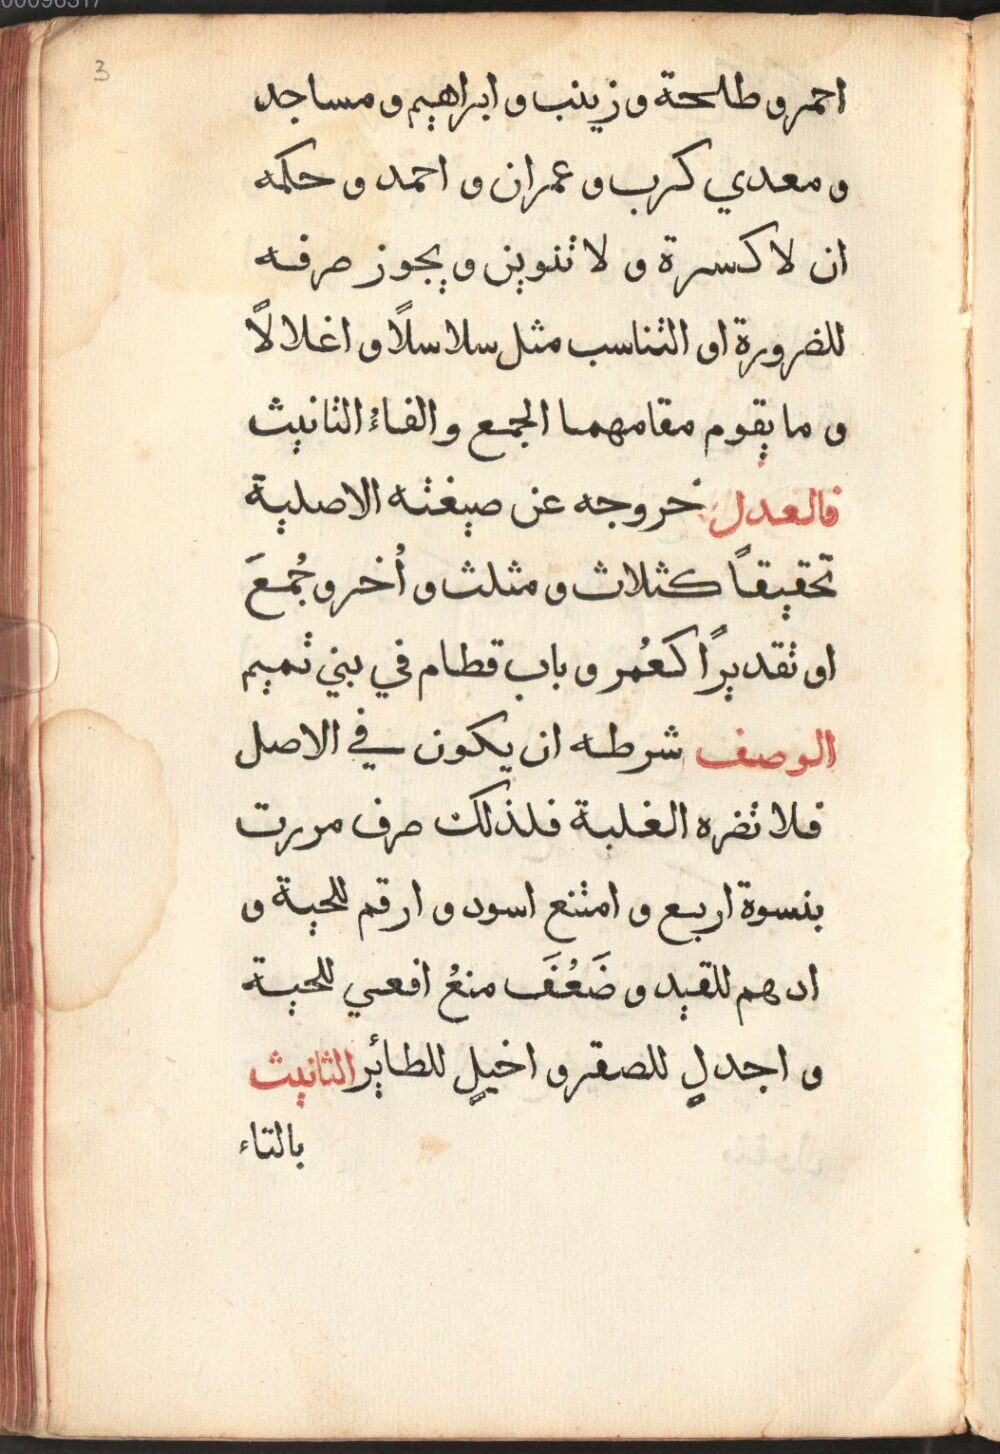 3
احمر و طلحة و زينب و ابراهيم و مساجد
و معدي كرب و عمران و احمد و حكمه
ان لا كسرة و لا تنوين و يجوز صرفه
للضرورة او التناسب مثل سلاسلًا و اغلالًا
و ما يقوم مقامهما الجمع و الفاءُ التانيث
فالعدل خروجه عن صيغته الاصلية
تحقيقًا كثلاث و مثلث و أُخر و جُمعَ
او تقديرًا كعُمر و باب قطام في بني تميم
الوصف شرطه ان يكون في الاصل
فلا تضره الغلبة فلذلك صرف مررت
بنسوة اربع و امتنع اسود و ارقم للحية و
ادهم للقيد و ضَعُفَ منعُ افعي للحية
و اجدلٍ للصقر و اخيلٍ للطائر التانيث
بالتاء